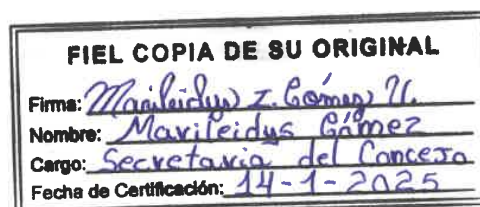 FIEL COPIA DE SU ORIGINAL
Firma: Marileidys I. Gómez U.
Nombre: Marileidys Gómez
Cargo: Secretaria del Concejo
Fecha de Certificación: 14-1-2025